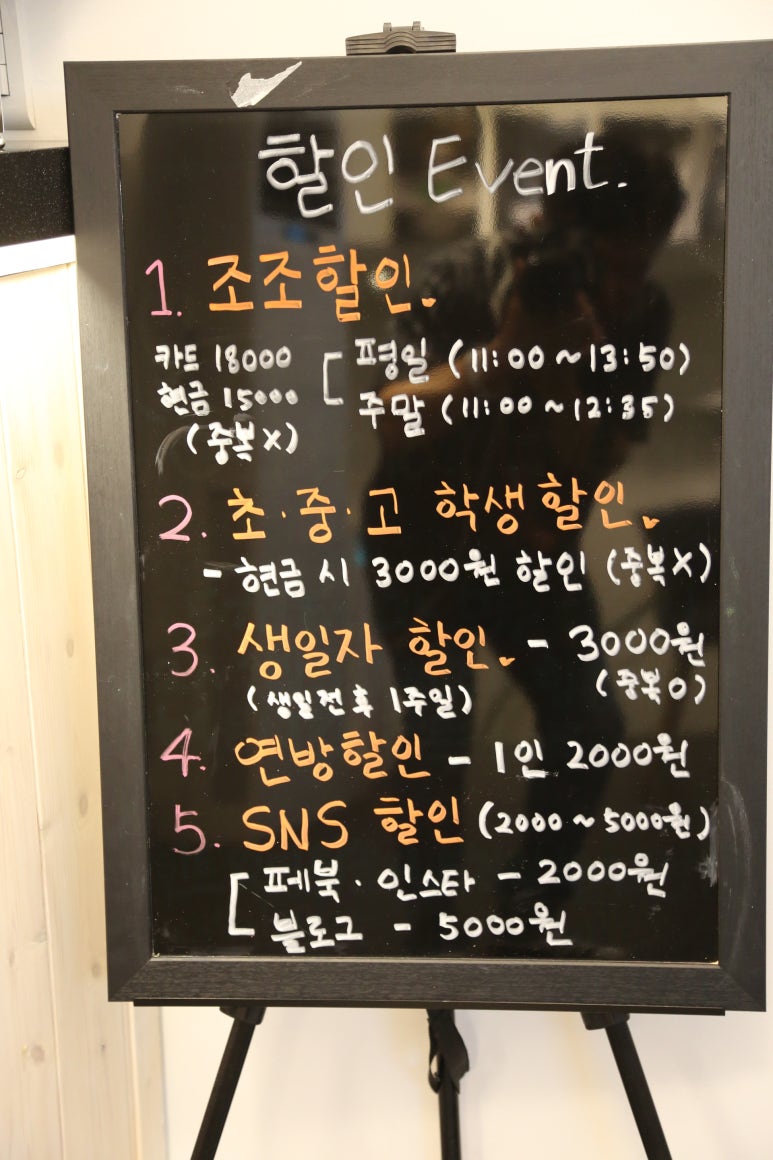 할인 Event.
1. 조조할인.
카드 18000
현금 15000
(중복X)
[ 평일 (11:00 ~ 13:50)
주말 (11:00 ~ 12:35)
2. 초·중·고 학생할인.
- 현금 시 3000원 할인 (중복X)
3. 생일자 할인. - 3000원
(생일전후 1주일) (중복O)
4. 연방할인 - 1인 2000원
5. SNS 할인 (2000 ~ 5000원)
[ 페북·인스타 - 2000원
블로그 - 5000원